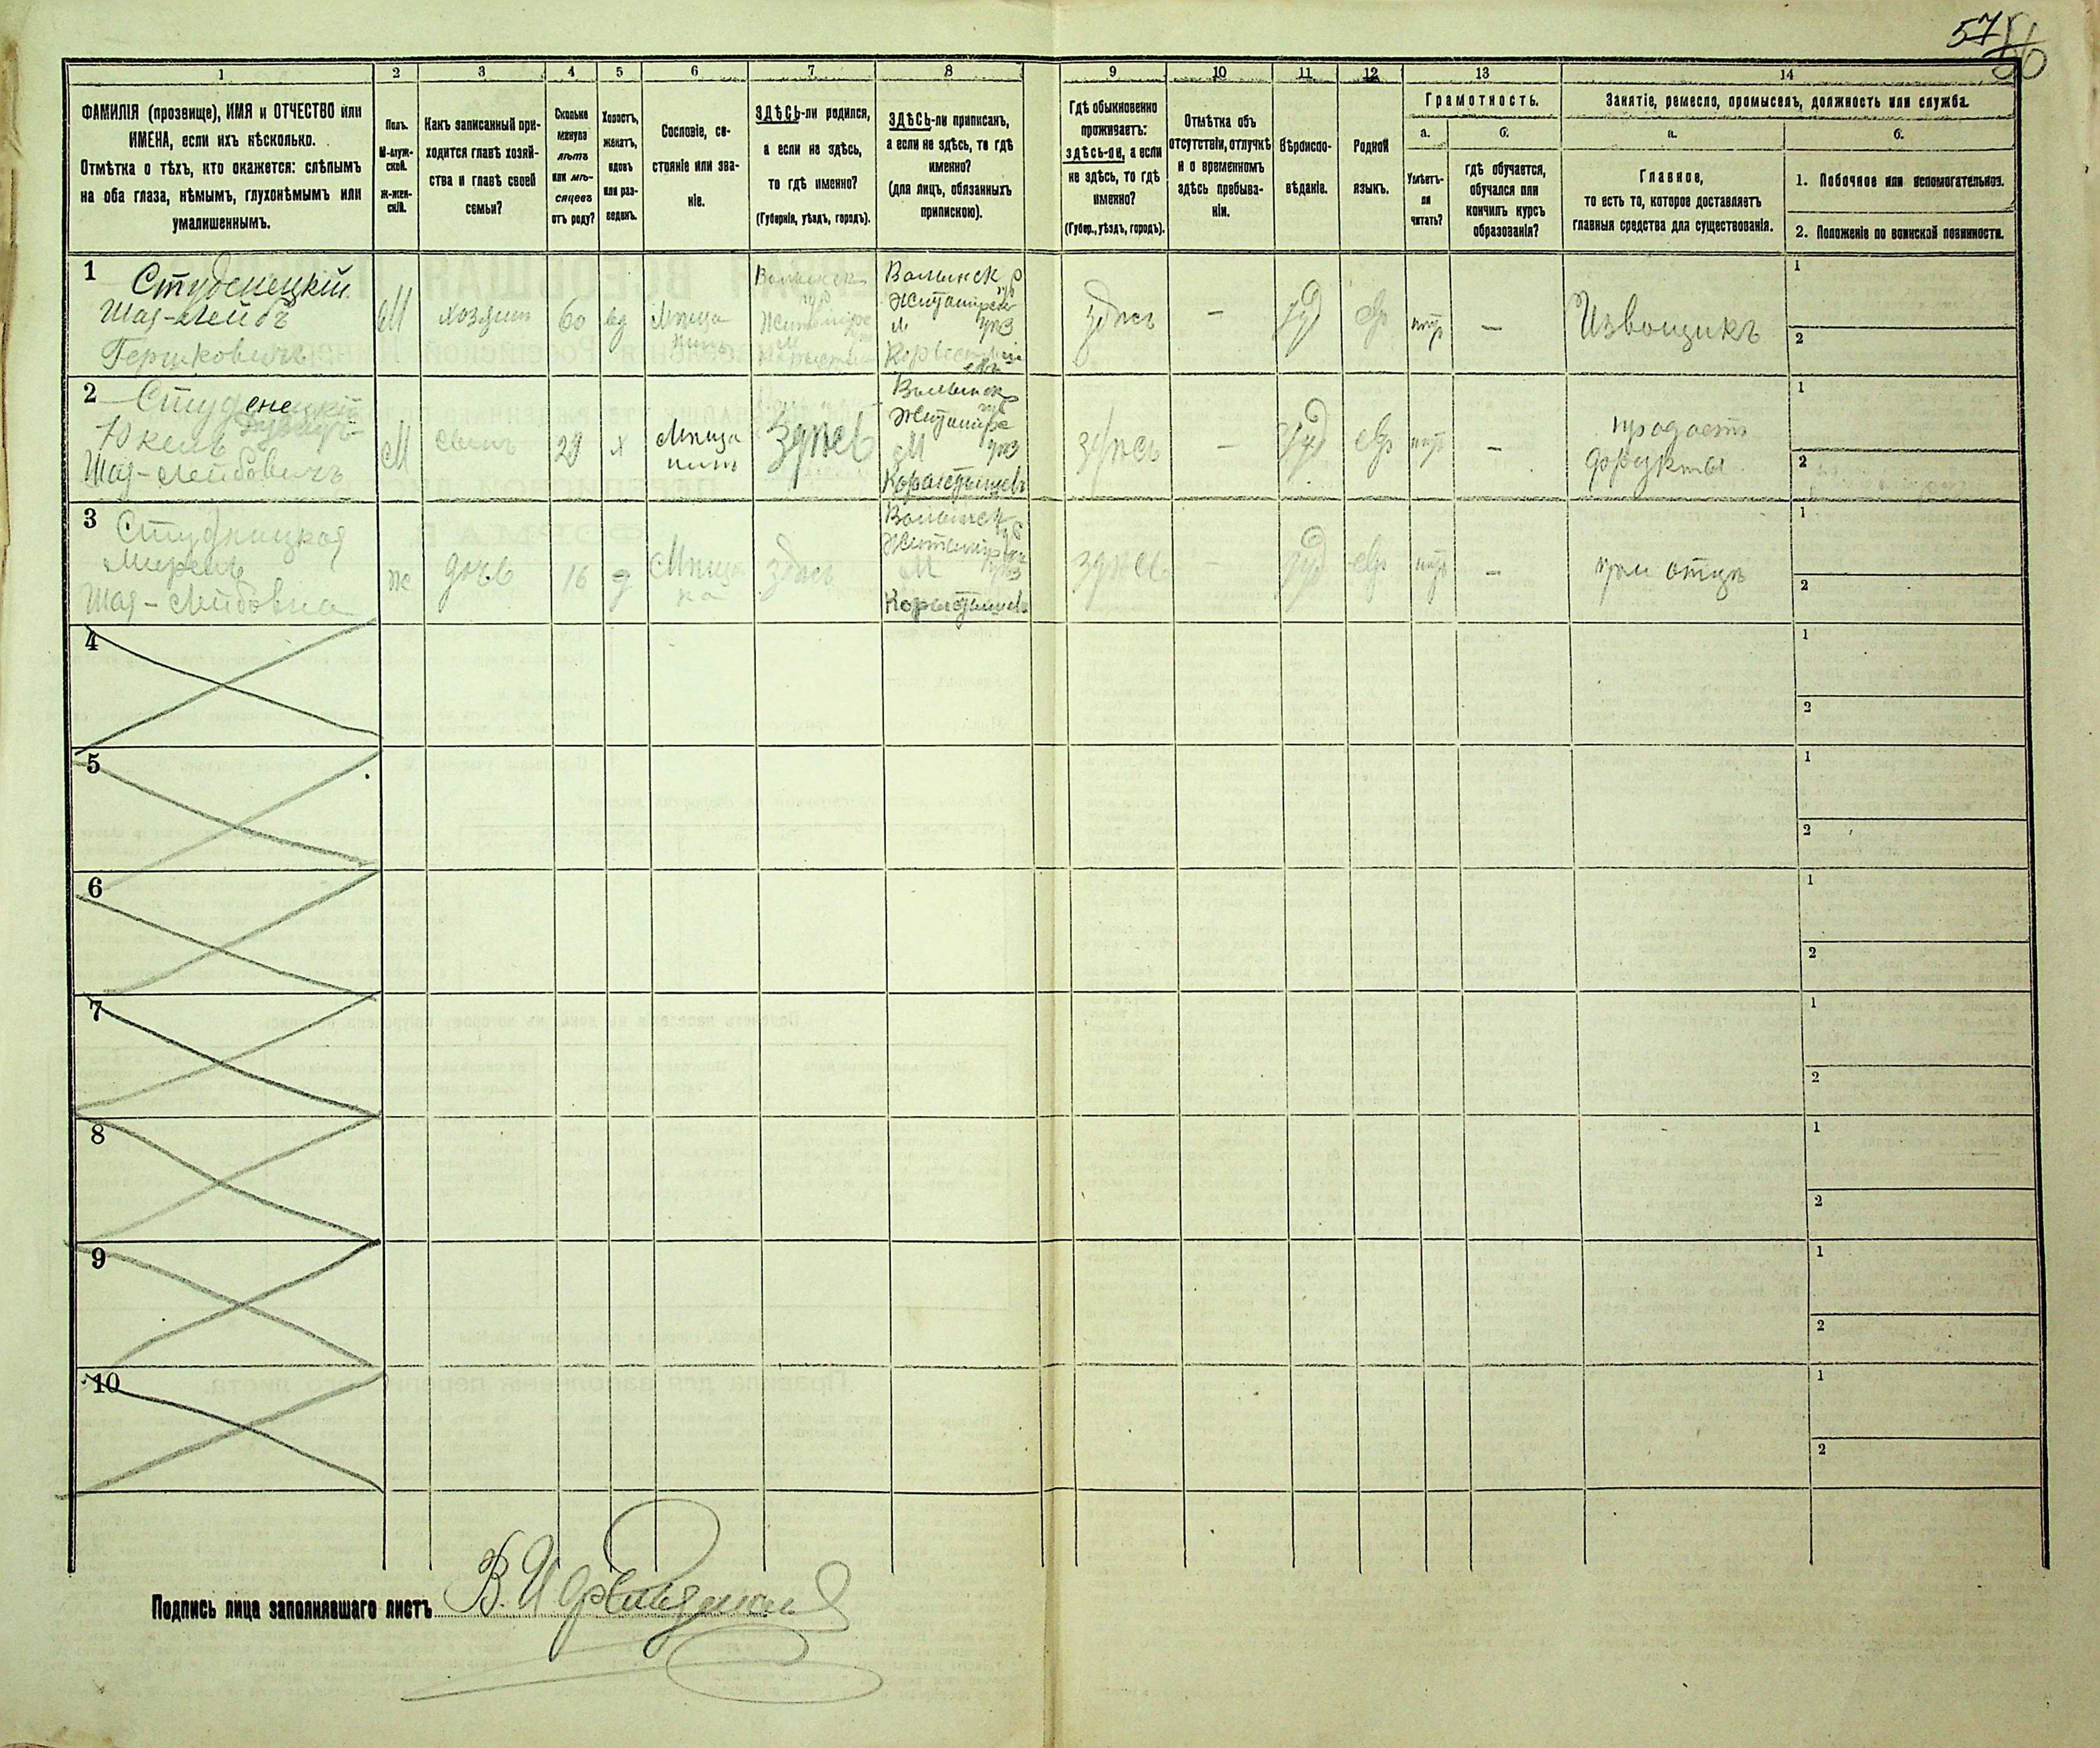 57
56
1 2 3 4 5 6 7 8 9 10 11 12 13 14
ФАМИЛІЯ (прозвище), ИМЯ и ОТЧЕСТВО или
ИМЕНА, если ихъ нѣсколько.
Отмѣтка о тѣхъ, кто окажется: слѣпымъ
на оба глаза, нѣмымъ, глухонѣмымъ или
умалишеннымъ.
Полъ.
М-муж-
ской.
Ж-жен-
скій.
Какъ записанный при-
ходится главѣ хозяй-
ства и главѣ своей
семьи?
Сколько
минуло
лѣтъ
или мѣ-
сяцевъ
отъ роду?
Холостъ,
женатъ,
вдовъ
или раз-
веденъ.
Сословіе, со-
стояніе или зва-
ніе.
ЗДѢСЬ-ли родился,
а если не здѣсь,
то гдѣ именно?
(Губернія, уѣздъ, городъ).
ЗДѢСЬ-ли приписанъ,
а если не здѣсь, то гдѣ
именно?
(для лицъ, обязанныхъ
припискою).
Гдѣ обыкновенно
проживаетъ:
здѣсь-ли, а если
не здѣсь, то гдѣ
именно?
(Губер., уѣздъ, городъ).
Отмѣтка объ
отсутствіи, отлучкѣ
и о временномъ
здѣсь пребыва-
ніи.
Вѣроиспо-
вѣданіе.
Родной
языкъ.
Грамотность.
а.
Умѣетъ-
ли
читать?
б.
гдѣ обучается,
обучался или
кончилъ курсъ
образованія?
Занятіе, ремесло, промыселъ, должность или служба.
а.
Главное,
то есть то, которое доставляетъ
главныя средства для существованія.
б.
1. Побочное или вспомогательное.
2. Положеніе по воинской повинности.
1
Студенецкій
Шая-Лейбъ
Гершковичъ
М
хозяин
60
вд
Мѣща
нинъ
Волынск
губ
Волынск
губ
Житомирск
м уѣз
здѣсь
-
Іуд
евр
нѣт
-
Извощикъ
1
2
2
Студенецкій
Юкель
Шая-Лейбовичъ
М
сынъ
29
х
Мѣща
нинъ
Здѣсь
Волынск
губ
Житомир
М уѣз
Коростышевъ
здѣсь
-
Іуд
евр
нѣт
-
продаетъ
фрукты
1
2
3
Студницкая
Шая-Лейбовна
ж
дочь
16
д
Мѣщан
ка
здѣсь
Волынск
губ
Житомир
М уѣз
Коростышевъ
здѣсь
-
Іуд
евр
нѣт
-
при отцѣ
1
2
4
1
2
5
1
2
6
1
2
7
1
2
8
1
2
9
1
2
10
1
2
Подпись лица заполнявшаго листъ